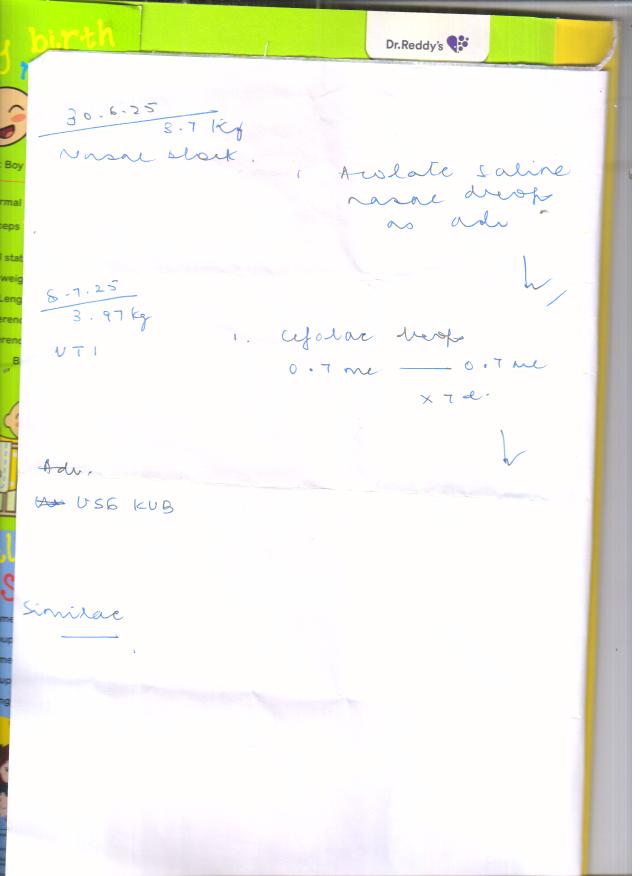 birth
Dr.Reddy's
Boy
30.6.25
3.7 Kg
Nasal block.
1 Acolate saline
nasal drops
as adv
8-7.25
3.97 kg
UTI
1. Cefolac drops
0.7 ml — 0.7 ml
x 7 d.
Adv.
USG KUB
Similac